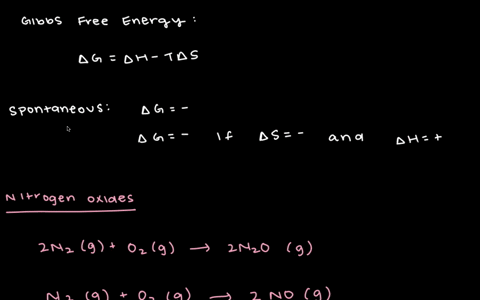 Gibbs Free Energy:
ΔG = ΔH - TΔS
Spontaneous: ΔG = -
ΔG = - If ΔS = - and ΔH = +
Nitrogen oxides
2N₂ (g) + O₂ (g) → 2N₂O (g)
N₂ (g) + O₂ (g) → 2 NO (g)